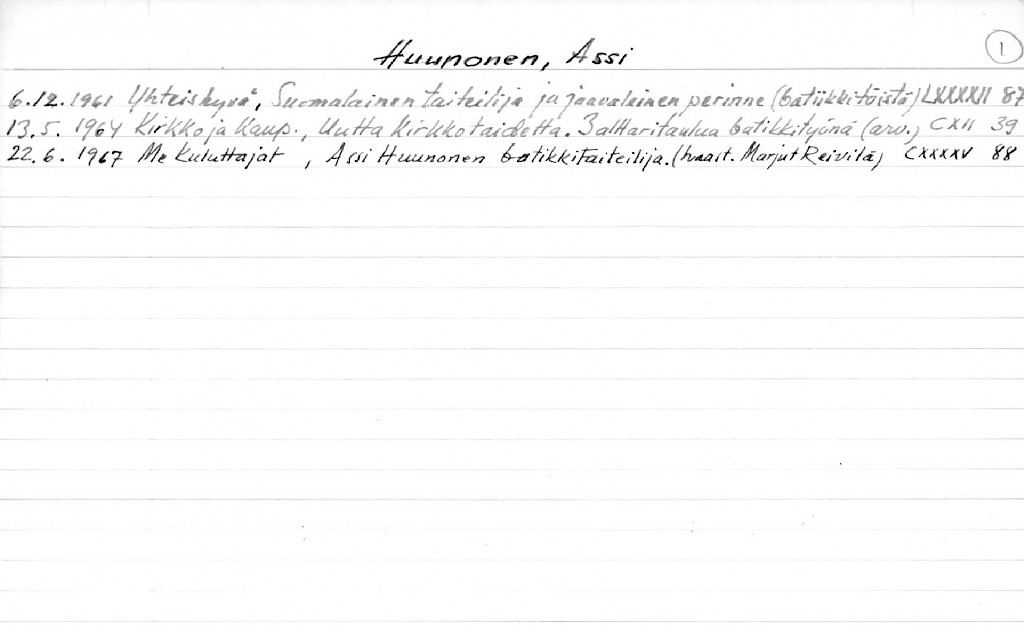 Huunonen, Assi
1
6.12.1961 Yhteishyvä, Suomalainen taiteilija ja jaavalainen perinne (batiikkitöistä) LXXXXII 87
13.5. 1964 Kirkko ja Kaup., Uutta kirkkotaidetta. 3 alttaritaulua batikkityönä (arv.) CXII 39
22.6. 1967 Me Kuluttajat , Assi Huunonen batikkitaiteilija. (haast. Marjut Reivilä) CXXXXV 88